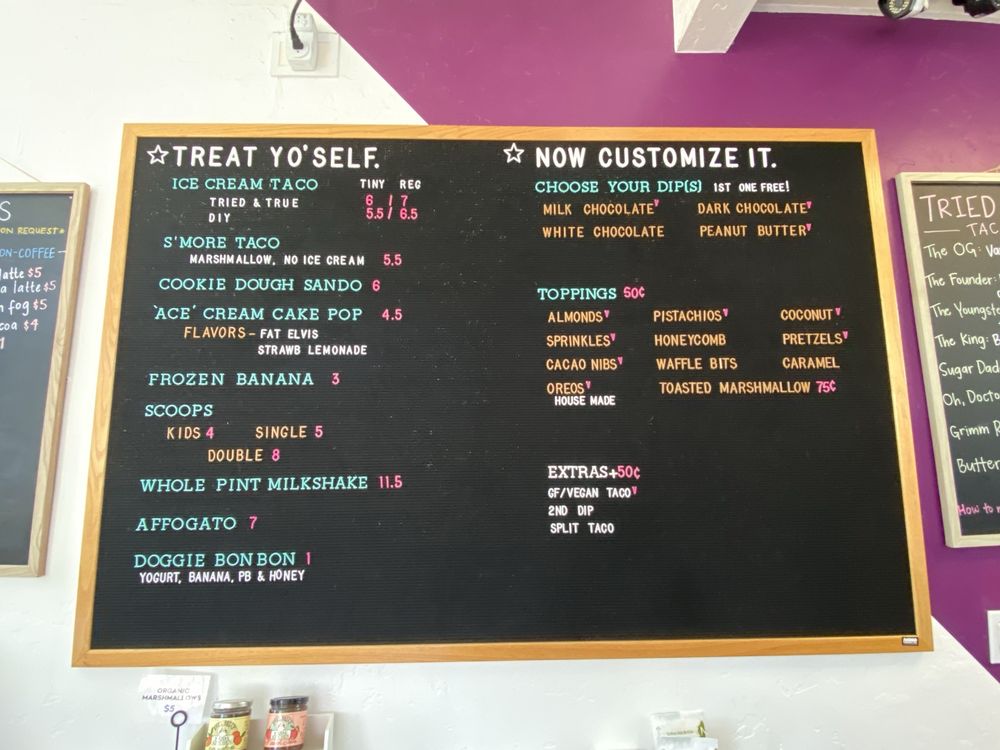 ☆ TREAT YO' SELF.
ICE CREAM TACO TINY REG
TRIED & TRUE 6 / 7
DIY 5.5 / 6.5
S'MORE TACO
MARSHMALLOW, NO ICE CREAM 5.5
COOKIE DOUGH SANDO 6
'ACE' CREAM CAKE POP 4.5
FLAVORS - FAT ELVIS
STRAWB LEMONADE
FROZEN BANANA 3
SCOOPS
KIDS 4 SINGLE 5
DOUBLE 8
WHOLE PINT MILKSHAKE 11.5
AFFOGATO 7
DOGGIE BON BON 1
YOGURT, BANANA, PB & HONEY
☆ NOW CUSTOMIZE IT.
CHOOSE YOUR DIP(S) 1ST ONE FREE!
MILK CHOCOLATE V DARK CHOCOLATE V
WHITE CHOCOLATE PEANUT BUTTER V
TOPPINGS 50¢
ALMONDS V PISTACHIOS V COCONUT V
SPRINKLES V HONEYCOMB PRETZELS V
CACAO NIBS V WAFFLE BITS CARAMEL
OREOS V TOASTED MARSHMALLOW 75¢
HOUSE MADE
EXTRAS+50¢
GF/VEGAN TACO V
2ND DIP
SPLIT TACO
S
ON REQUEST*
ON-COFFEE
latte $5
a latte $5
fog $5
coa $4
TRIED
TAC
The OG: Va
The Founder:
The Youngste
The King: B
Sugar Dad
Oh, Docto
Grimm R
Butter
How to
ORGANIC
MARSHMALLOWS
$5